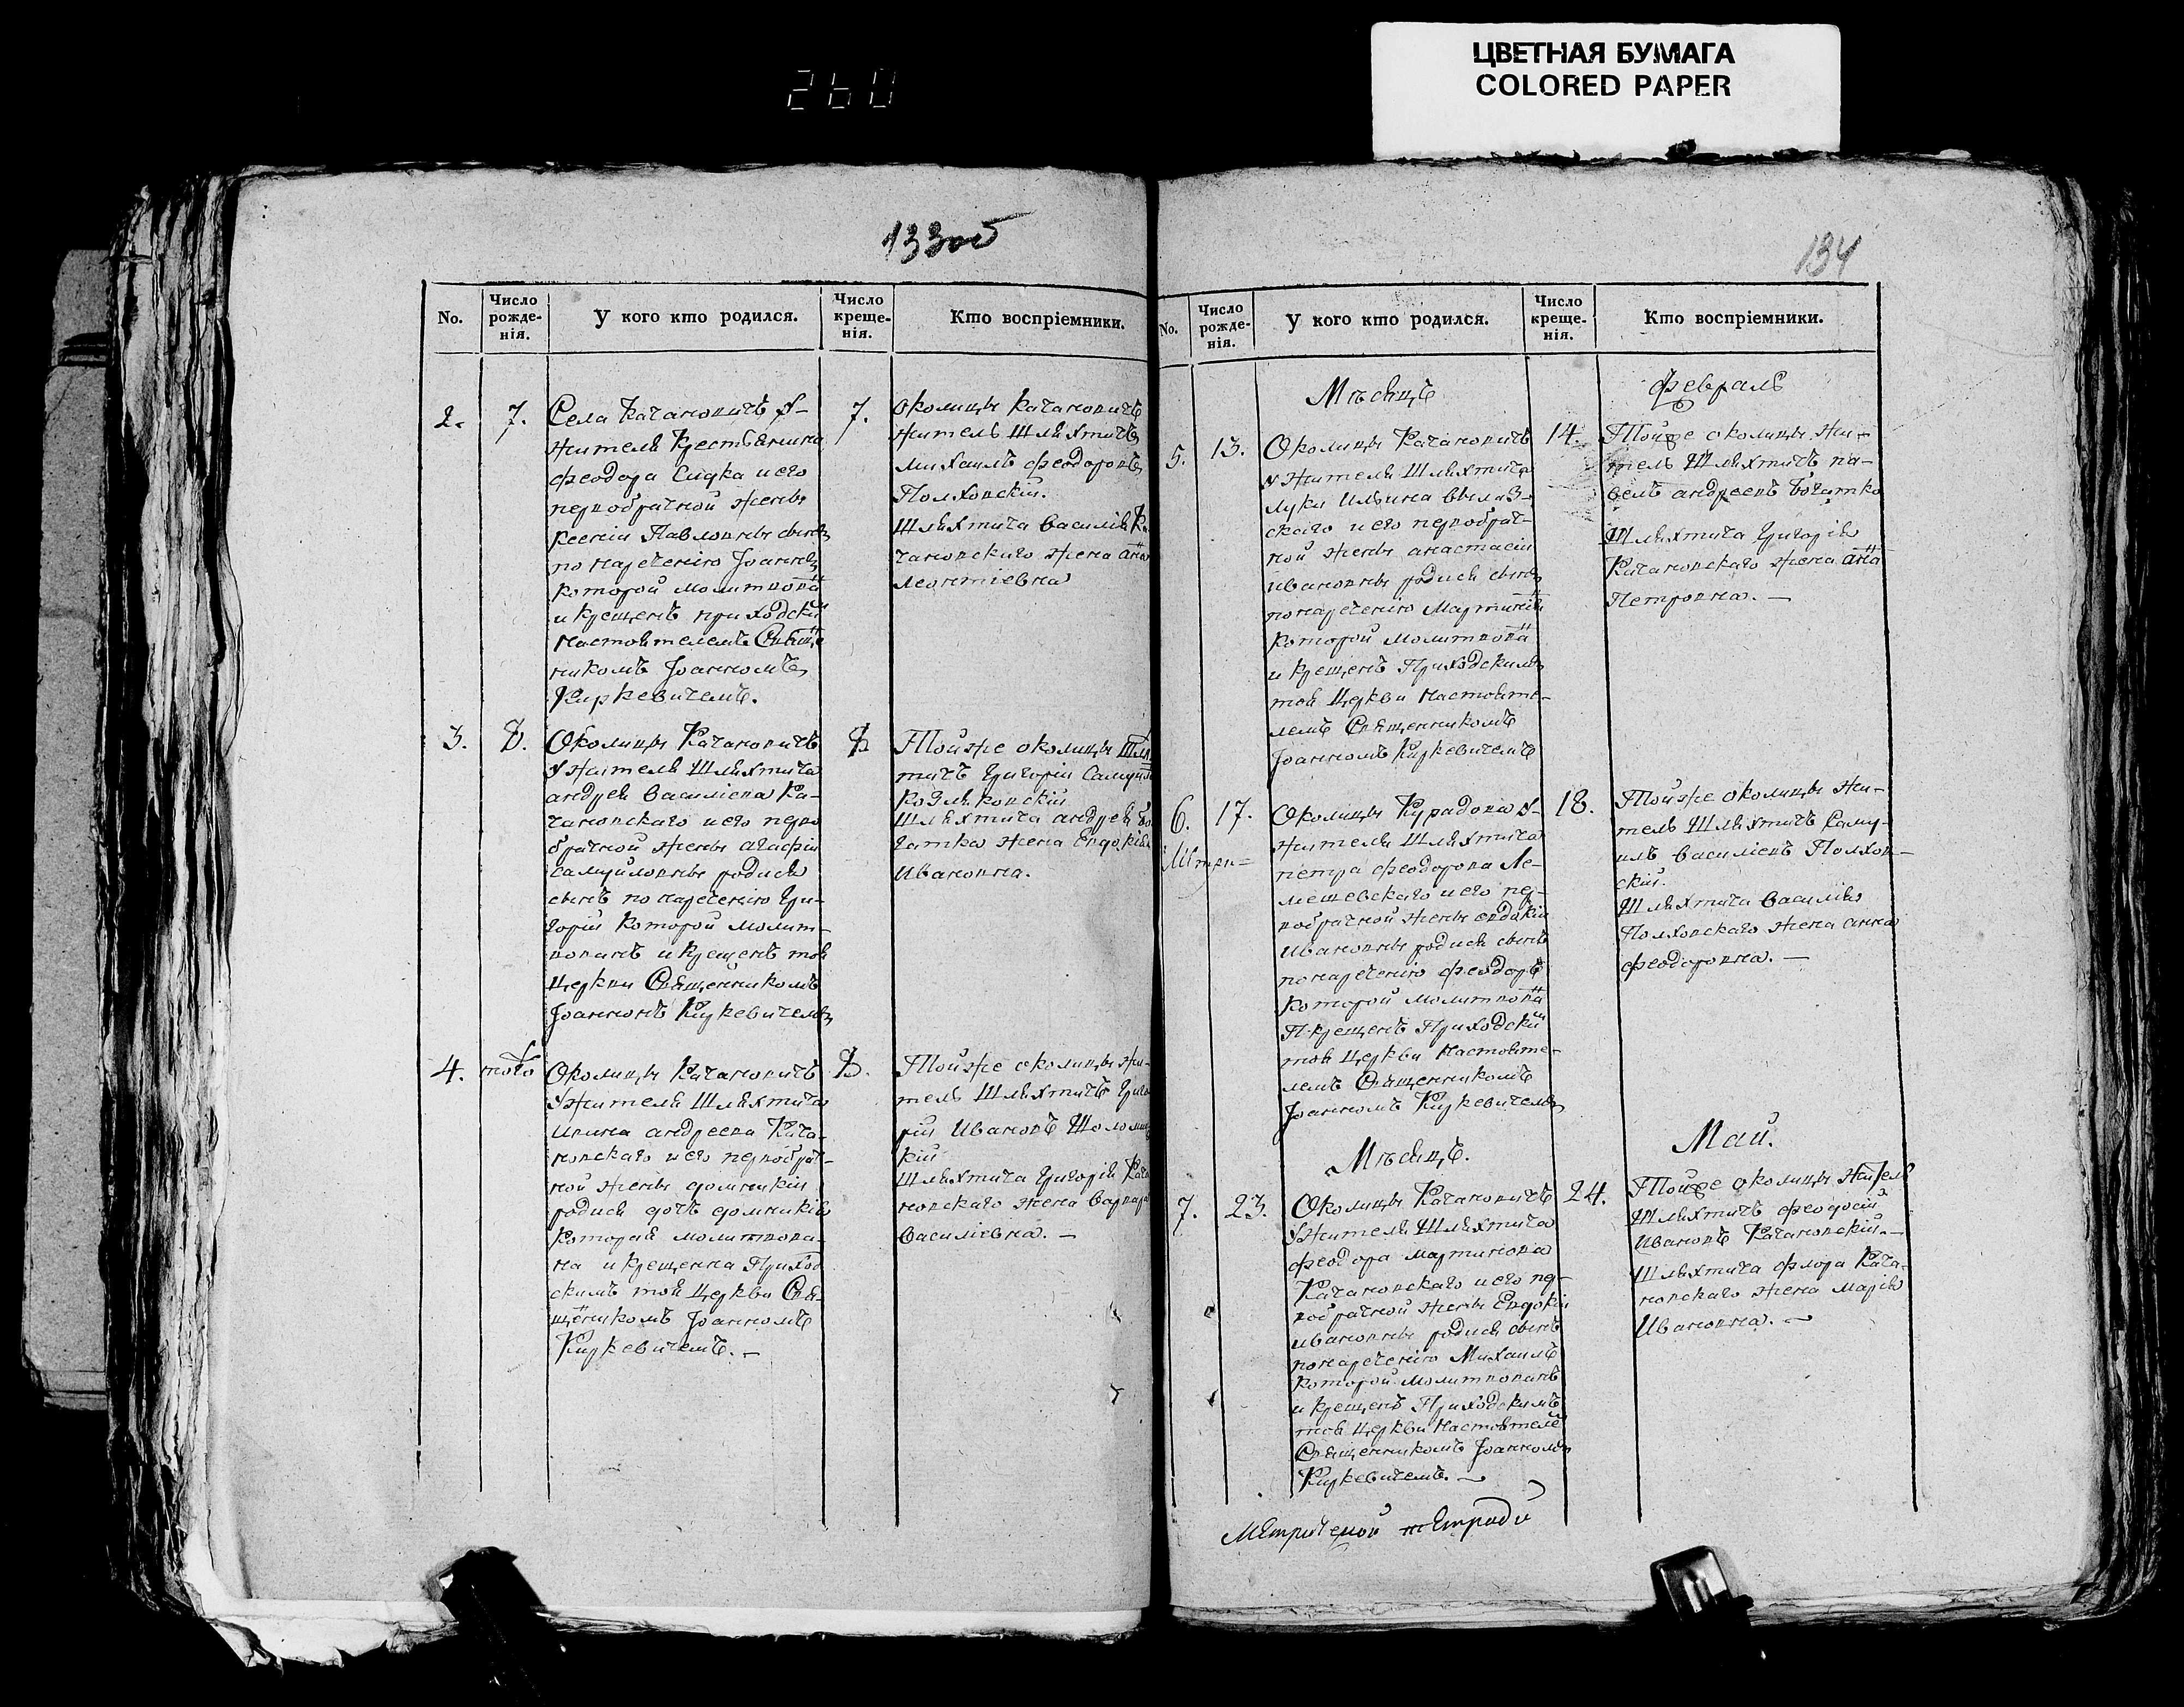 260
ЦВЕТНАЯ БУМАГА
COLORED PAPER
133об
No.
Число рожде-нія.
У кого кто родился.
Число креще-нія.
Кто воспріемники.
2.
7.
Села Качановичъ у
жителя Крестьянина
феодора Сидка и его
первобрачной жены
Ксеніи Павловны сынъ
по нареченію Іоаннъ
которой молитвова
и крещенъ приходски
настоятелемъ Священ
никомъ Іоанномъ
Киркевичемъ.
7.
околицы Качановичъ
житель Шляхтичъ
михаилъ феодоровъ
Полховскій.
Шляхтича Василія Ка
чановскаго жена анна
Леонтіевна
3.
8.
Околицы Качановичъ
у жителя Шляхтича
андрея Василіева Ка-
чановскаго и его перво
брачной жены агафіи
Самуйловны родися
сынъ по нареченію Гри-
горій которой молит-
вованъ и крещенъ тоя
церкви Священникомъ
Іоанномъ Киркевичемъ
8
Тойже околицы Шлях
тичъ Григорій Самуил
Козляковскій
Шляхтича андрея Бо
гатка жена Евдокія
Ивановна.
4.
того
Околицы Качановичъ
у жителя Шляхтича
андреева Кача-
новскаго и его первобрач-
ной жены домникіи
родися дочь домникія
которая молитвова-
на и крещенна Приход
скимъ тоя церкви Свя-
щенникомъ Іоанномъ
Киркевичемъ.
8.
Тойже околицы жи-
тель Шляхтичъ Григо
рій Ивановъ Шоломиц
кій
Шляхтича Григорія Кача
новскаго жена варвара
Василіевна. —
134
No.
Число рожде-нія.
У кого кто родился.
Число креще-нія.
Кто воспріемники.
Мѣсяцъ
февраль
5.
13.
Околицы Качановичъ
у жителя Шляхтича
луки Ильина
скаго и его первобрач-
ной жены анастасіи
ивановны родися сынъ
по нареченію Мартинія
которой молитвова
и крещенъ Приходскимъ
тоя Церкви настояте-
лемъ Священникомъ
Іоанномъ Киркевичемъ
14.
Тойже околицы жи-
тель Шляхтичъ па-
велъ андреевъ Богатко
Шляхтича Григорія
Качановскаго жена анна
Петровна. —
6.
17.
Околицы Курадова у
жителя Шляхтича
петра феодорова Ле-
мешевскаго и его пер-
вобрачной жены евдокіи
Ивановны родися сынъ
по нареченію феодоръ
которой молитвова
и крещенъ Приходски
тоя Церкви настояте-
лемъ Священникомъ
Іоанномъ Киркевичемъ
18.
Тойже околицы жи-
тель Шляхтичъ Саму-
илъ Василіевъ Полхов-
скій.
Шляхтича Василія
Полховскаго жена анна
феодоровна. —
Мѣсяцъ.
Май.
7.
23.
Околицы Качановичъ
у жителя Шляхтича
феодора мартинова
Качановскаго и его пер-
вобрачной жены Евдокіи
ивановны родися сынъ
по нареченію Михаилъ
которой молитвованъ
и крещенъ Приходскимъ
тоя церкви настоятеле
Священникомъ Іоанномъ
Киркевичемъ. —
24.
Тойже околицы житель
Шляхтичъ феодосій
Ивановъ Качановскій. —
Шляхтича флора Кача-
новскаго жена Марія
Ивановна. —
Метричной тетради